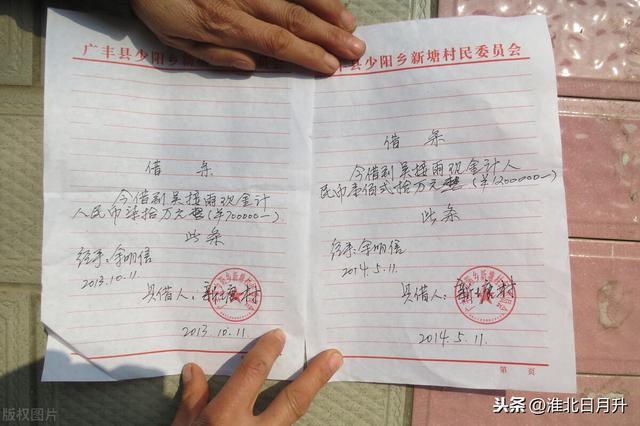 广丰县少阳乡新
借条
今借到吴接雨现金计
人民币柒拾万元整(¥700000—)
此条
经手:余明信
2013.10.11.
具借人:新塘村
2013.10.11.
广丰县少阳乡新塘村民委员会
借条
今借到吴接雨现金计人
民币壹佰贰拾万元整(¥1200000—)
此条
经手:余明信
2014.5.11.
具借人:新塘村
2014.5.11.
第 页
版权图片
头条 @淮北日月升